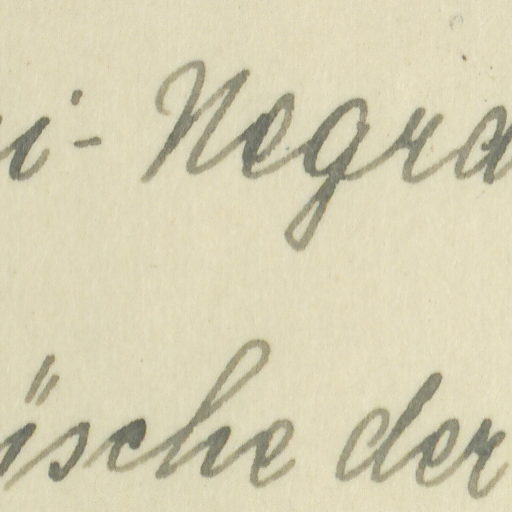 i- Negra
üsche der